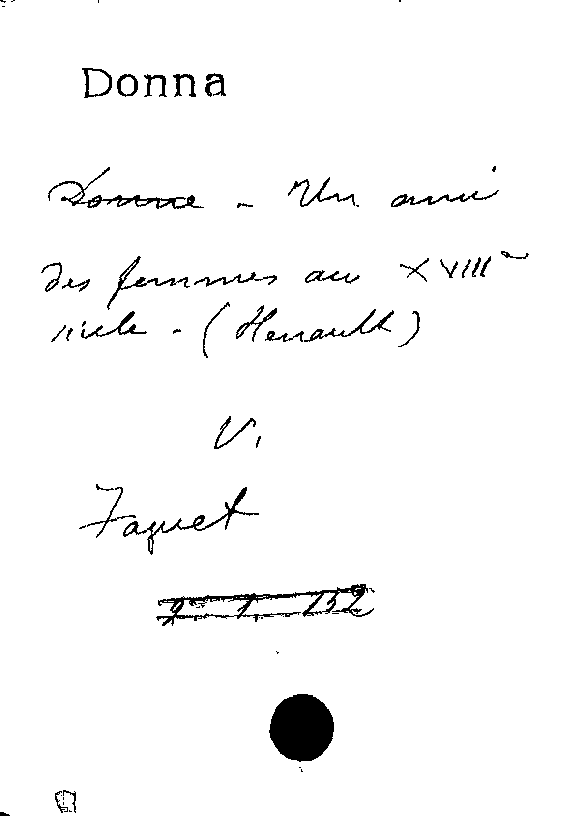 Donna
Donna - Un ami
des femmes au XVIIIe
siècle - (Henault)
V.
Faguet
2. 1. 152